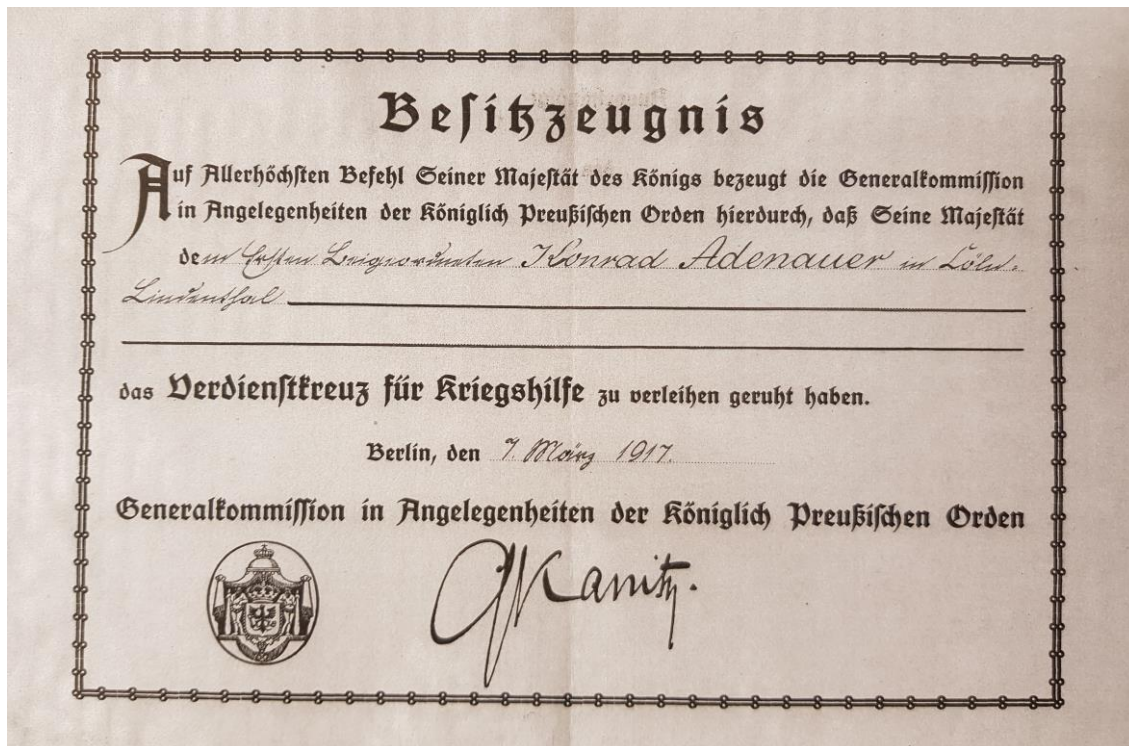 Besitzzeugnis
Auf Allerhöchsten Befehl Seiner Majestät des Königs bezeugt die Generalkommission
in Angelegenheiten der Königlich Preußischen Orden hierdurch, daß Seine Majestät
dem Ersten Beigeordneten Konrad Adenauer in Cöln-
Lindenthal
das Verdienstkreuz für Kriegshilfe zu verleihen geruht haben.
Berlin, den 7. März 1917.
Generalkommission in Angelegenheiten der Königlich Preußischen Orden
Kanitz.